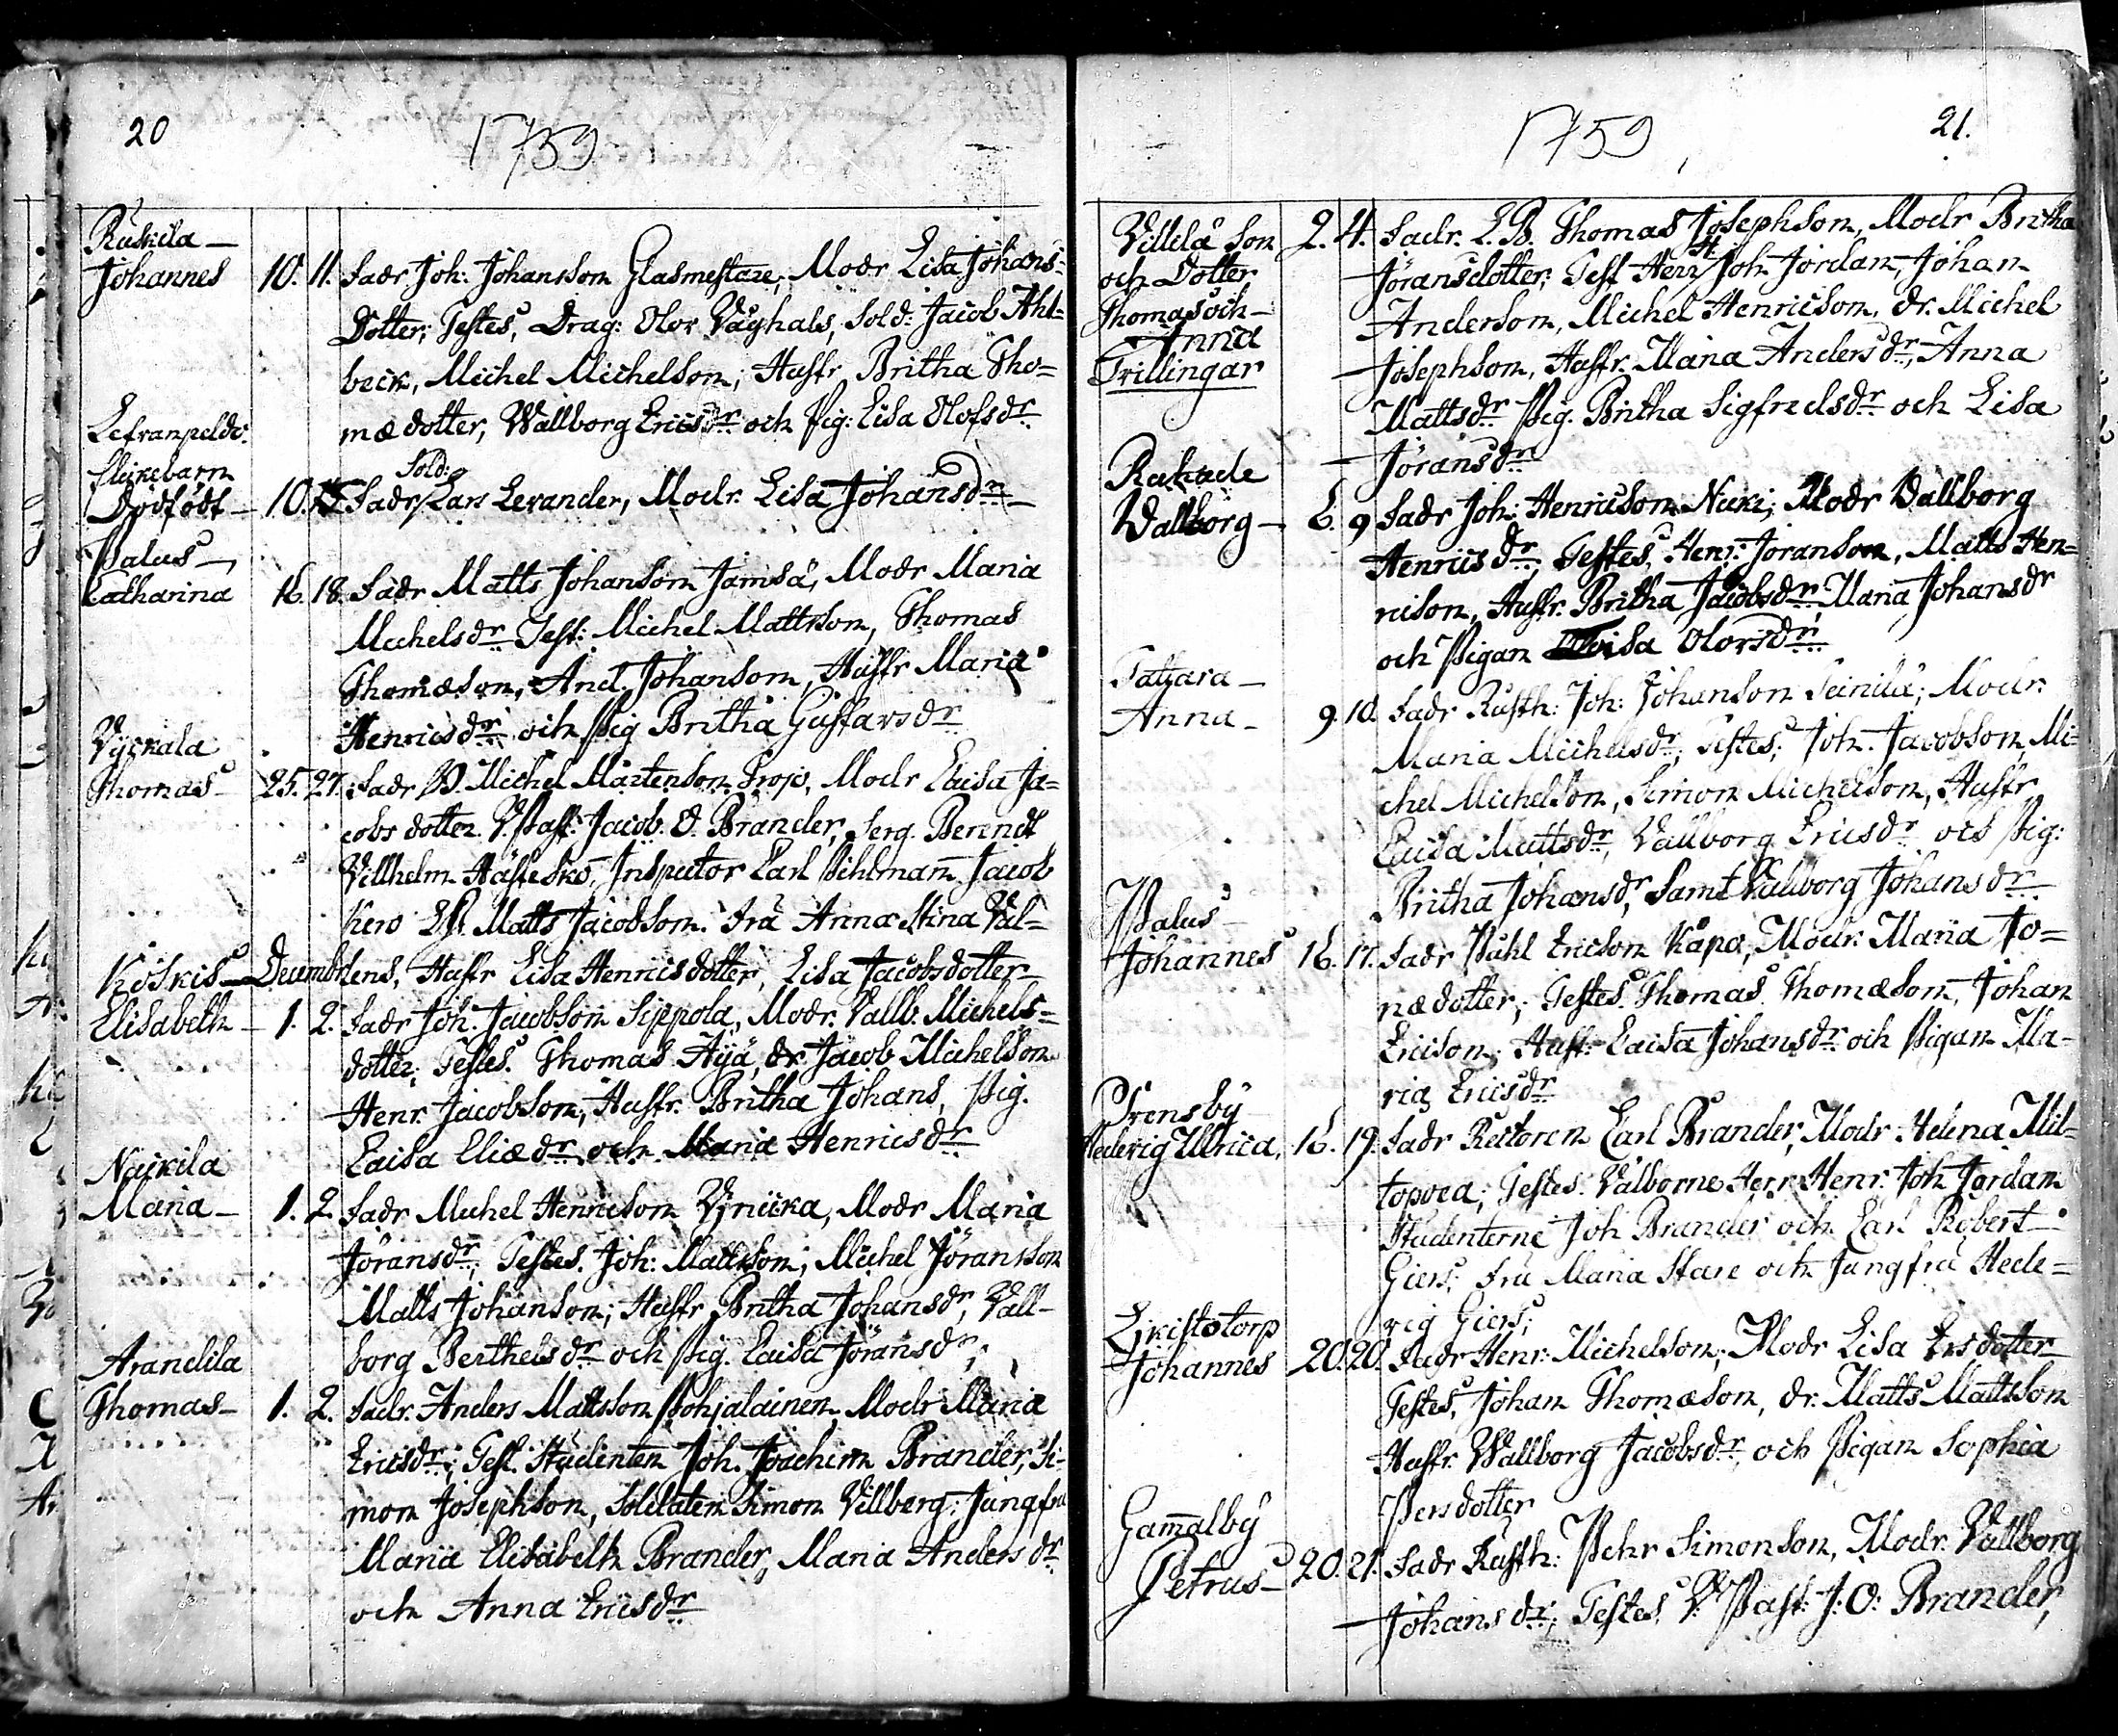 20
1759
Ruskila —
Johannes 10. 11. Fadr Joh: Johansson Glasmestare, Modr Lisa Johans-
Dotter; Testes, Drag: Olov Våghals, Sold: Jacob Ahl=
beck, Michel Michelson; Hustr Britha Tho=
mædotter, Wallborg Ericsdr och Pig: Lisa Olofsdr
flickebarn
Sold:
Dödfödt — 10. Fadr Lars Levander, Modr. Lisa Johansdr —
Palus —
Catharina 16. 18. Fadr Matts Johanson Jamsä, Modr Maria
Michelsdr Test: Michel Mattsson, Thomas
Thomæson, And. Johanson, Hustr Maria
Henricsdr och Pig Britha Gustavsdr
Vyckala
Thomas 25. 27. Fadr Michel Mårtenson Prop, Modr Caisa Ja=
cobsdotter. V. Past: Jacob. O. Brander, Serg. Berendt
Villhelm Hästesko, Inspector Carl Pihlman Jacob
Kero Matts Jacobson. Fru Anna Stina Val=
Köskis — Decemb. lens, Hustr Lisa Henricsdotter, Lisa Jacobsdotter
Elisabeth — 1. 2. Fadr Joh. Jacobson Sippola, Modr. Vallb. Michels=
dotter; Testes. Thomas Äyä, dr. Jacob Michelson
Henr. Jacobson, Hustr. Britha Johans, Pig.
Caisa Eliædr och Maria Henricsdr
Nuckila
Maria — 1. 2. Fadr Michel Henricson Vinicka, Modr Maria
Jöransdr; Testes. Joh: Mattsson; Michel Jöransson
Matts Johanson; Hustr Britha Johansdr, Vall-
borg Berthelsdr och Pig. Caisa Jöransdr;
Arandila
Thomas — 1. 2. Fadr. Anders Mattsson Pohjalainen, Modr Maria
Ericsdr; Test. Studenten Joh. Joachim Brander, Si-
mon Josephson, Soldaten Simon Villberg: Jungfru
Maria Elisabeth Brander, Maria Andersdr
och Anna Ericsdr
1759
21.
Villilä Son 2. 4. Fadr. L. B. Thomas Josephson, Modr Britha
och Dotter Jöransdotter; Test Herr H Joh Jordan, Johan
Thomas och Anderson, Michel Henricson, dr. Michel
Anna
Trillingar Josephson, Hustr. Maria Andersdr, Anna
Mattsdr Pig. Britha Sigfredsdr och Lisa
Jöransdr
Rahade
Wallborg — 6. 9 Fadr Joh: Henricson Nicki; Modr Vallborg
Henricsdr; Testes, Henr: Joranson, Matts Hen=
ricson, Hustr. Britha Jacobsdr Maria Johansdr
och Pigan Lovisa Olovsdr
Tattara —
Anna — 9. 10. Fadr Rusth: Joh: Johanson Seinilä; Modr.
Maria Michelsdr; Testes; Joh. Jacobson, Mi-
chel Michelson, Simon Michelson, Hustr
Caisa Mattsdr, Vallborg Ericsdr och Pig:
Britha Johansdr, Samt Vallborg Johansdr
Palus —
Johannes 16. 17. Fadr Påhl Ericson Kåpo, Modr: Maria Jo=
nædotter; Testes. Thomas Thomæson, Johan
Ericson; Hustr. Caisa Johansdr och Pigan Ma-
ria Ericsdr
Prensby
Hedevig Ulrica, 16. 19. Fadr Rectoren Carl Brander, Modr Helena Mil-
topoea; Testes. Välborne Herr Henr. Joh Jordan
Studenterne Joh Brander och Carl Robert
Giers; Fru Maria Stare och Jungfru Hede=
vig Giers;
Qvistotorp
Johannes 20. 20. Fadr Henr: Michelson; Modr Lisa Ersdotter
Testes, Johan Thomæson, dr. Matts Mattsson
Hustr. Wallborg Jacobsdr och Pigan Sophia
Persdotter
Gamalby
Petrus — 20. 21. Fadr Rusth: Pehr Simonson, Modr. Vallborg
Johansdr; Testes, V. Past: J: O: Brander,